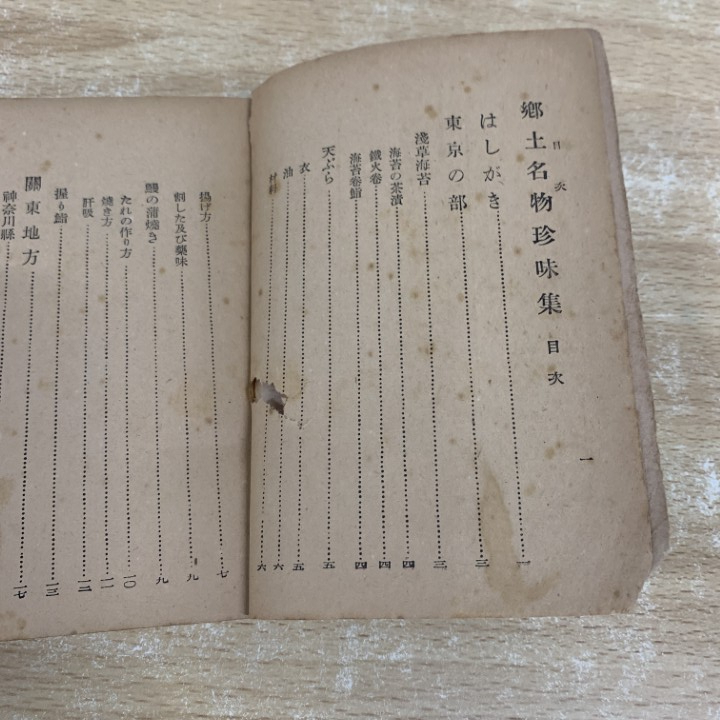 目次
郷土名物珍味集 目次
一
はしがき…一
東京の部…三
淺草海苔…三
海苔の茶漬…四
鐵火卷…四
海苔卷鮨…四
天ぷら…五
衣…五
油…六
材料…六
揚げ方…七
割した及び藥味…九
鰻の蒲燒き…九
たれの作り方…一〇
燒き方…一一
肝吸…一二
握り鮨…一三
關東地方…一七
神奈川縣